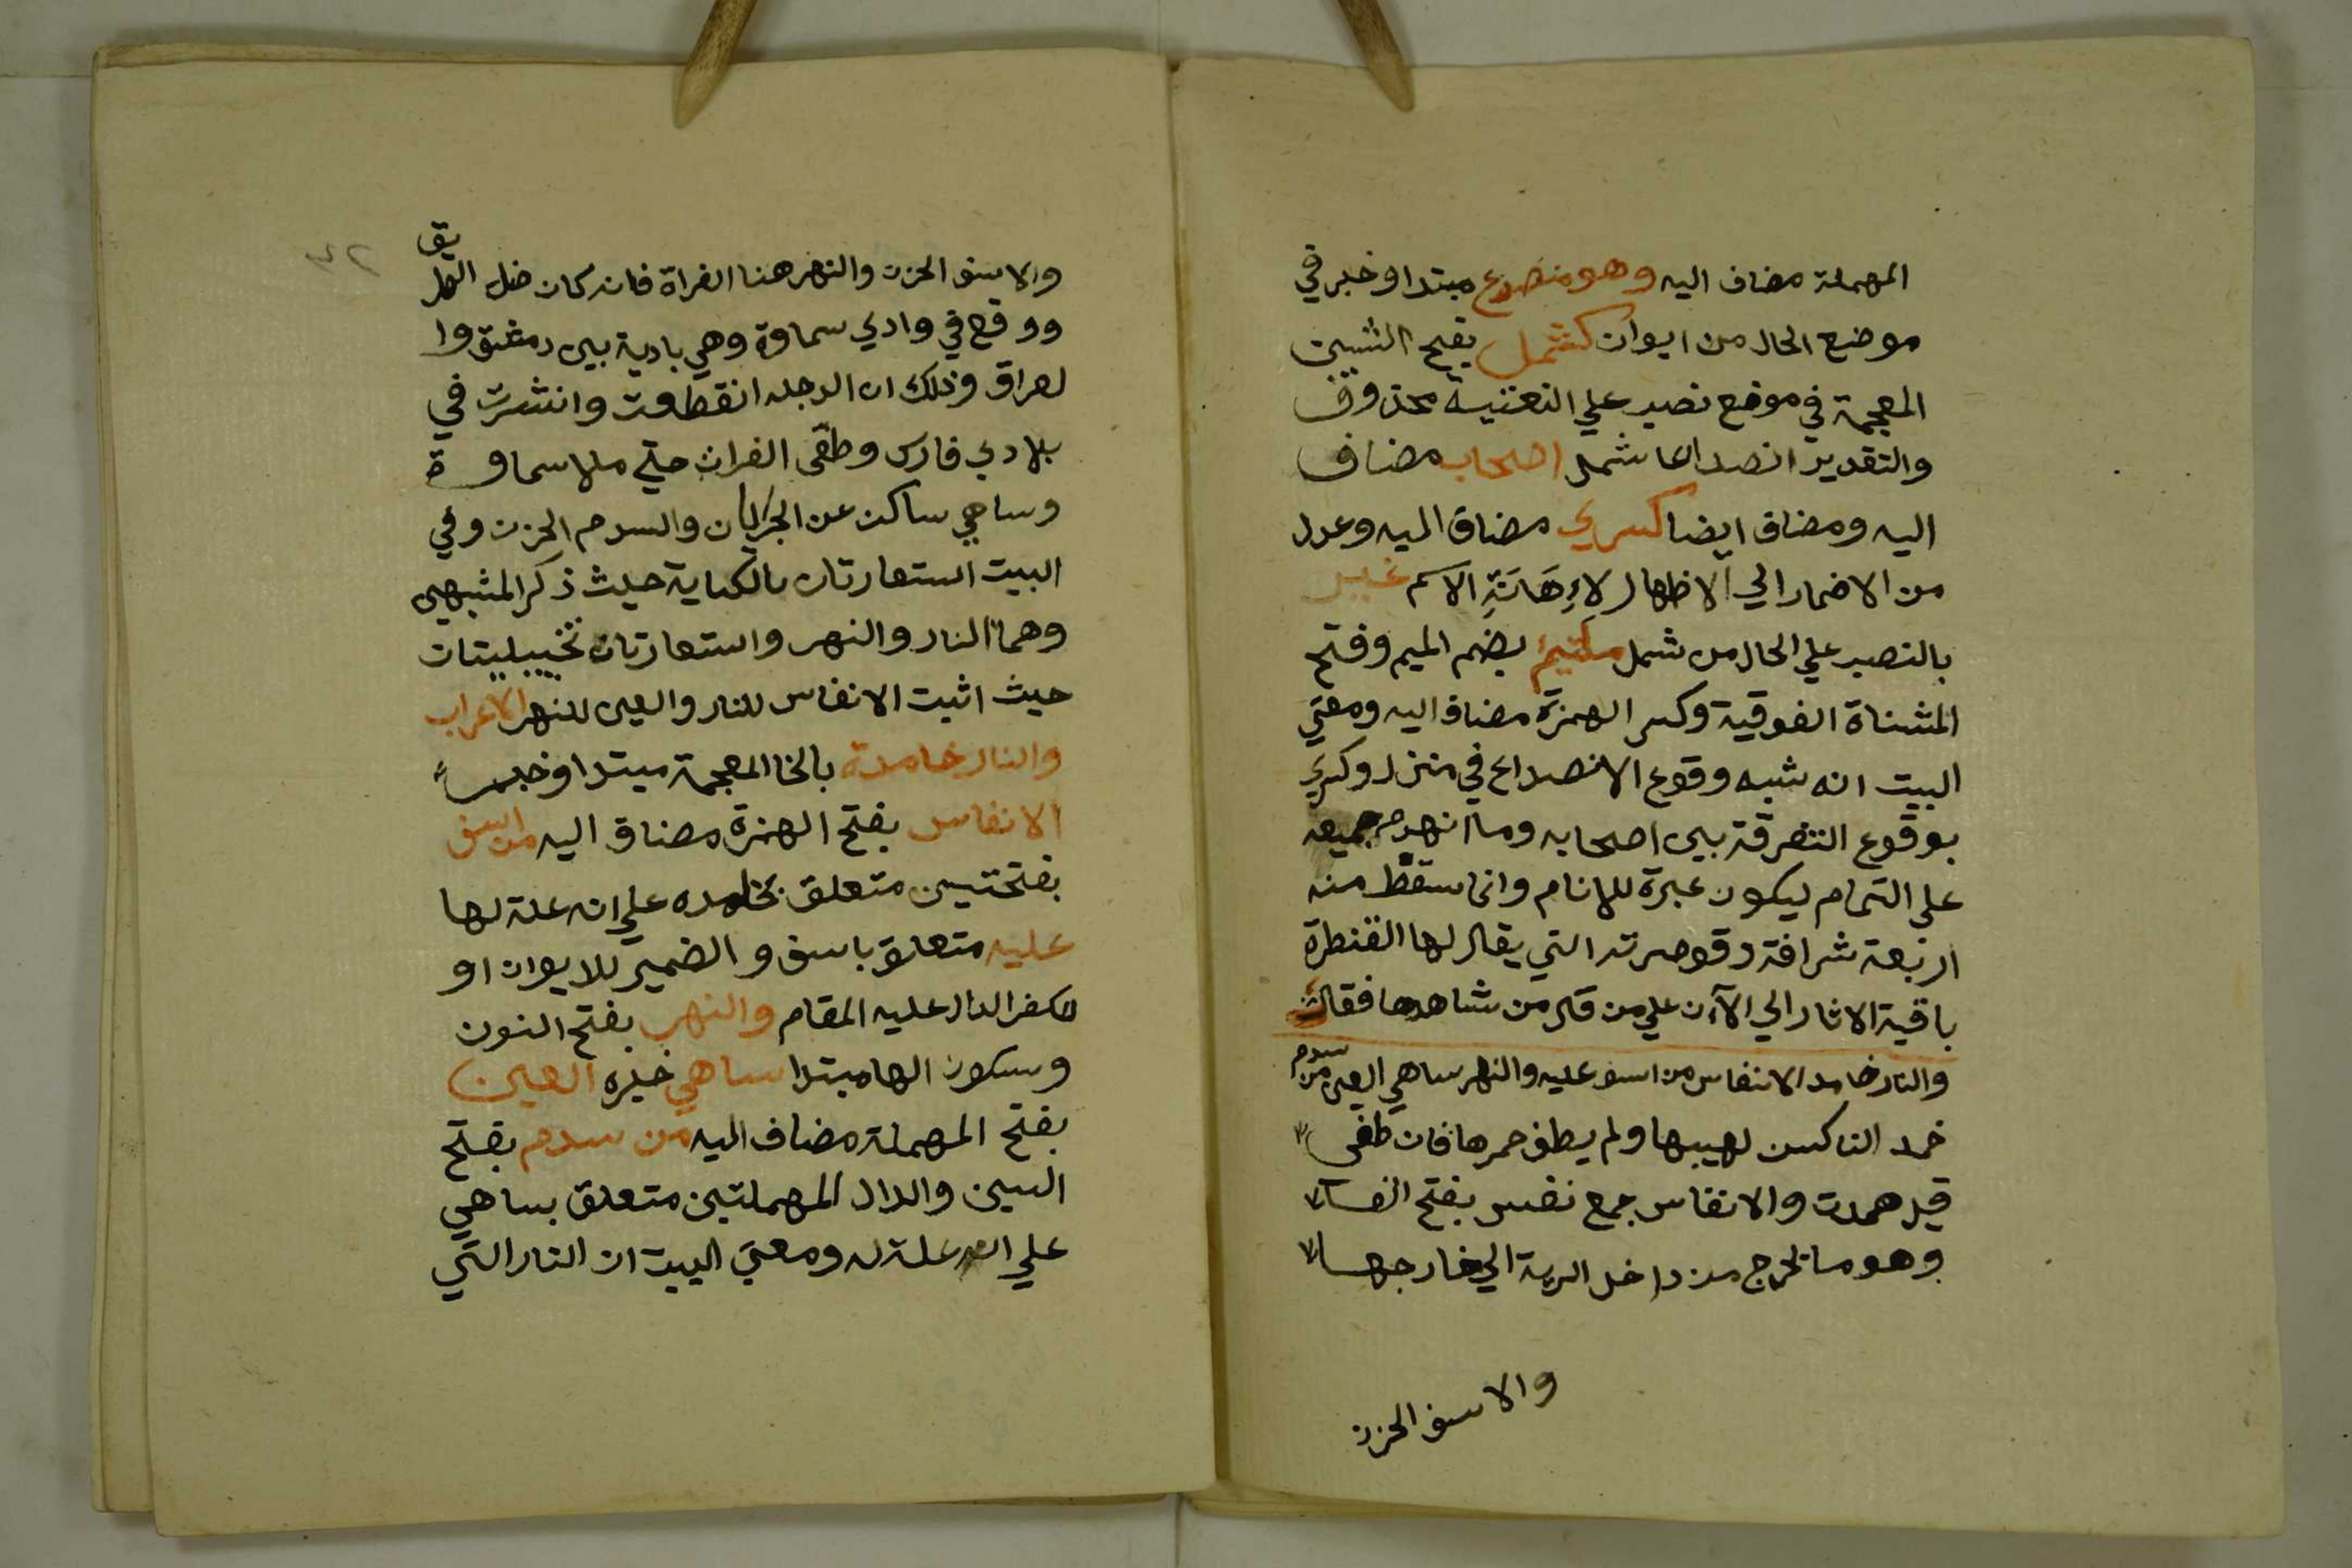 المهملة مضاف اليه وهو منصدع مبتدا وخبر في
موضع الحال من ايوان كشمل بفتح الشين
المعجمة في موضع نصب علي النعتية محذوف
والتقدير انصداعا كشمل اصحاب مضاف
اليه ومضاف ايضا كسري مضاف اليه وعدل
من الاضمار الي الاظهار لاءِهَانَةِ الاسم غير
بالنصب علي الحال من شمل ملتئم بضم الميم وفتح
المثناة الفوقية وكسر الهمزة مضاف اليه ومعني
البيت انه شبه وقوع الانصداع في منزل وكسري
بوقوع التفرقة بين اصحابه وما انهدم جميعه
علي التمام ليكون عبرة للانام وانما سقط منه
اربعة شرافة وقوصرته التي يقال لها القنطرة
باقية الاثار الي الآن علي من مر من شاهدها فقال
والنار خامد الانفاس من اسف عليه والنهر ساهي العين من سدم
خمد النار سكن لهيبها ولم يطف جمرها فان طفي
قيل همدت والانفاس جمع نفس بفتح الفا
وهو ما تخرج من داخل الرية الي خارجها
والاسف الحزن
والاسف الحزن والنهر هنا الفراة فانه كان ضل الطريق
ووقع في وادي سماوة وهي بادية بين دمشق وا
لعراق وذلك ان الدجله انقطعت وانتشرت في
بلادي فارس وطفي الفرات حتي ملا سماوة
وساهي ساكن عن الجريان والسدم الحزن وفي
البيت استعارتان بالكناية حيث ذكر المشبهين
وهما النار والنهر واستعارتان تخييليتان
حيث اثبت الانفاس للنار والعين للنهر الاعراب
والنار خامدة بالخا المعجمة مبتدا وخبر
الانفاس بفتح الهمزة مضاف اليه من اسف
بفتحتين متعلق بخامده علي انه علة لها
عليه متعلق باسف و الضمير للايوان او
للكفر الدال عليه المقام والنهر بفتح النون
وسكون الها مبتدا ساهي خبره العين
بفتح المهملة مضاف اليه من سدم بفتح
السين والدال المهملتين متعلق بساهي
علي انه علة له ومعني البيت ان النار التي